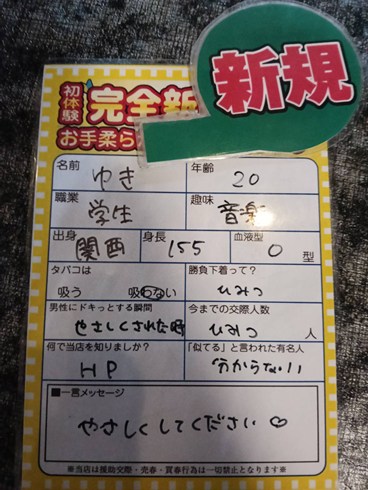 新規
初体験 完全新
お手柔ら
名前 ゆき 年齢 20
職業 学生 趣味 音楽
出身 関西 身長 155 血液型 O 型
タバコは 勝負下着って?
吸う 吸わない ひみつ
男性にドキっとする瞬間 今までの交際人数
やさしくされた時 ひみつ 人
何で当店を知りましたか? 「似てる」と言われた有名人
HP 分からない!!
■一言メッセージ
やさしくしてください♡
※当店は援助交際・売春・買春行為は一切禁止となります※